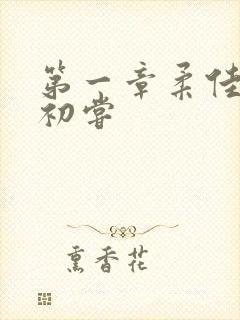 第一章柔佳
初嘗
熏香花